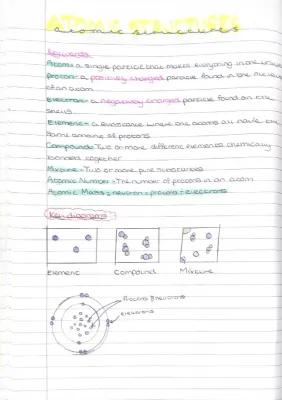 ATOMIC STRUCTURES
atomic structures
Keywords
Atom: a single particle that makes everything in the universe
Proton: a positively charged particle found in the nucleus
of an atom
Electron- a negatively charged particle found on the
shells
Element- a substance where the atoms all have the
same amount of protons
Compound- Two or more different elements chemically
bonded together
Mixture- Two or more pure substances
Atomic Number- The number of protons in an atom
Atomic Mass- neutron + protons + electrons
Key diagrams
Element Compound Mixture
Protons & neutrons
electrons